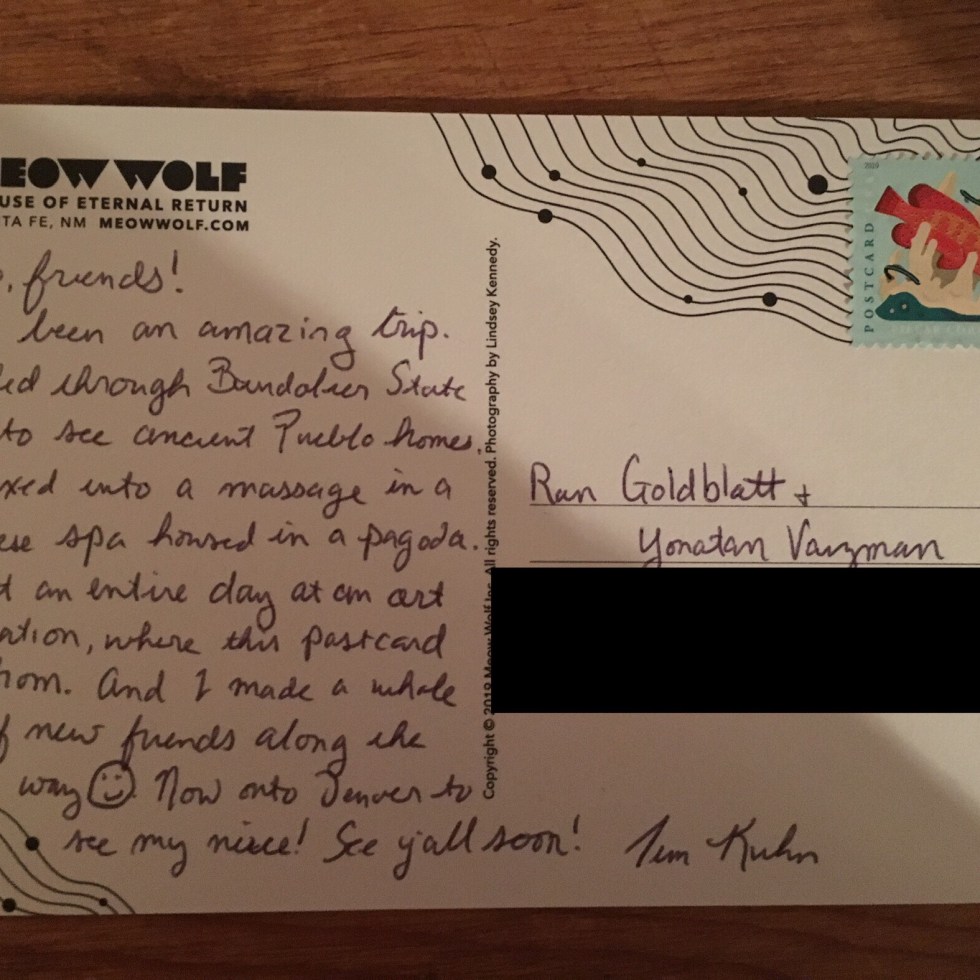 EOW WOLF
USE OF ETERNAL RETURN
TA FE, NM MEOWWOLF.COM
o, friends!
been an amazing trip.
ed through Bandolier State
to see ancient Pueblo homes,
xed into a massage in a
ese spa housed in a pagoda.
t an entire day at an art
ation, where this postcard
rom. And I made a whole
f new friends along the
way Now onto Denver to
see my niece! See y'all soon!
Tim Kuhn
Copyright © 2018 Meow Wolf Inc. All rights reserved. Photography by Lindsey Kennedy.
POSTCARD
Ran Goldblatt +
Yonatan Vaizman